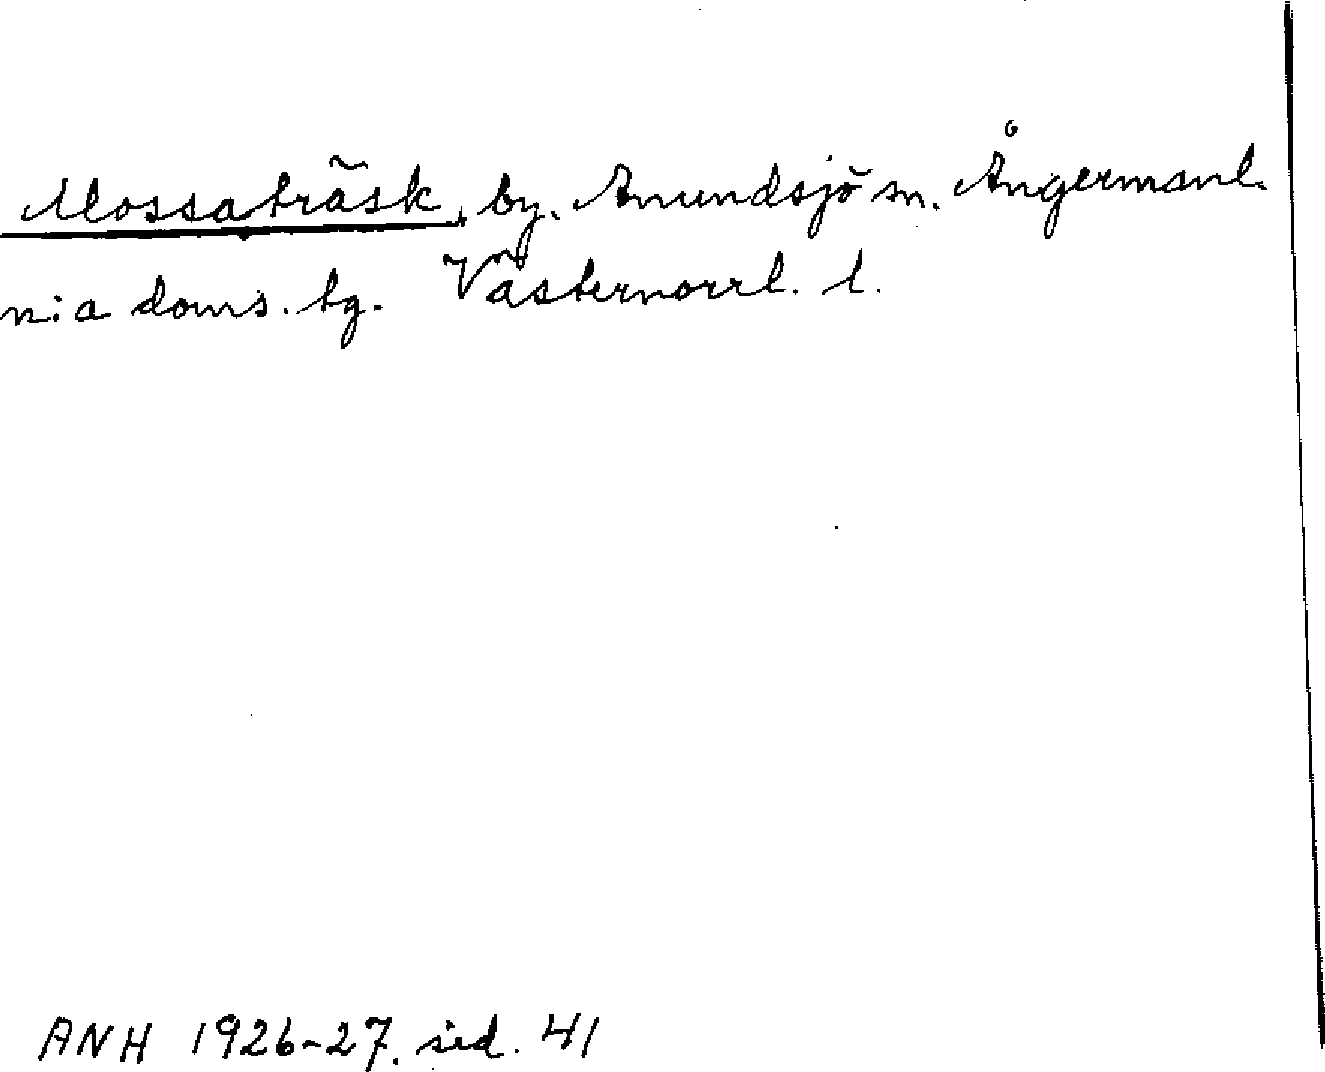 Mossaträsk, by. Anundsjö sn. Ångermanl.
n:a doms. tg. Västernorrl. l.
ANH 1926-27. sid. 41